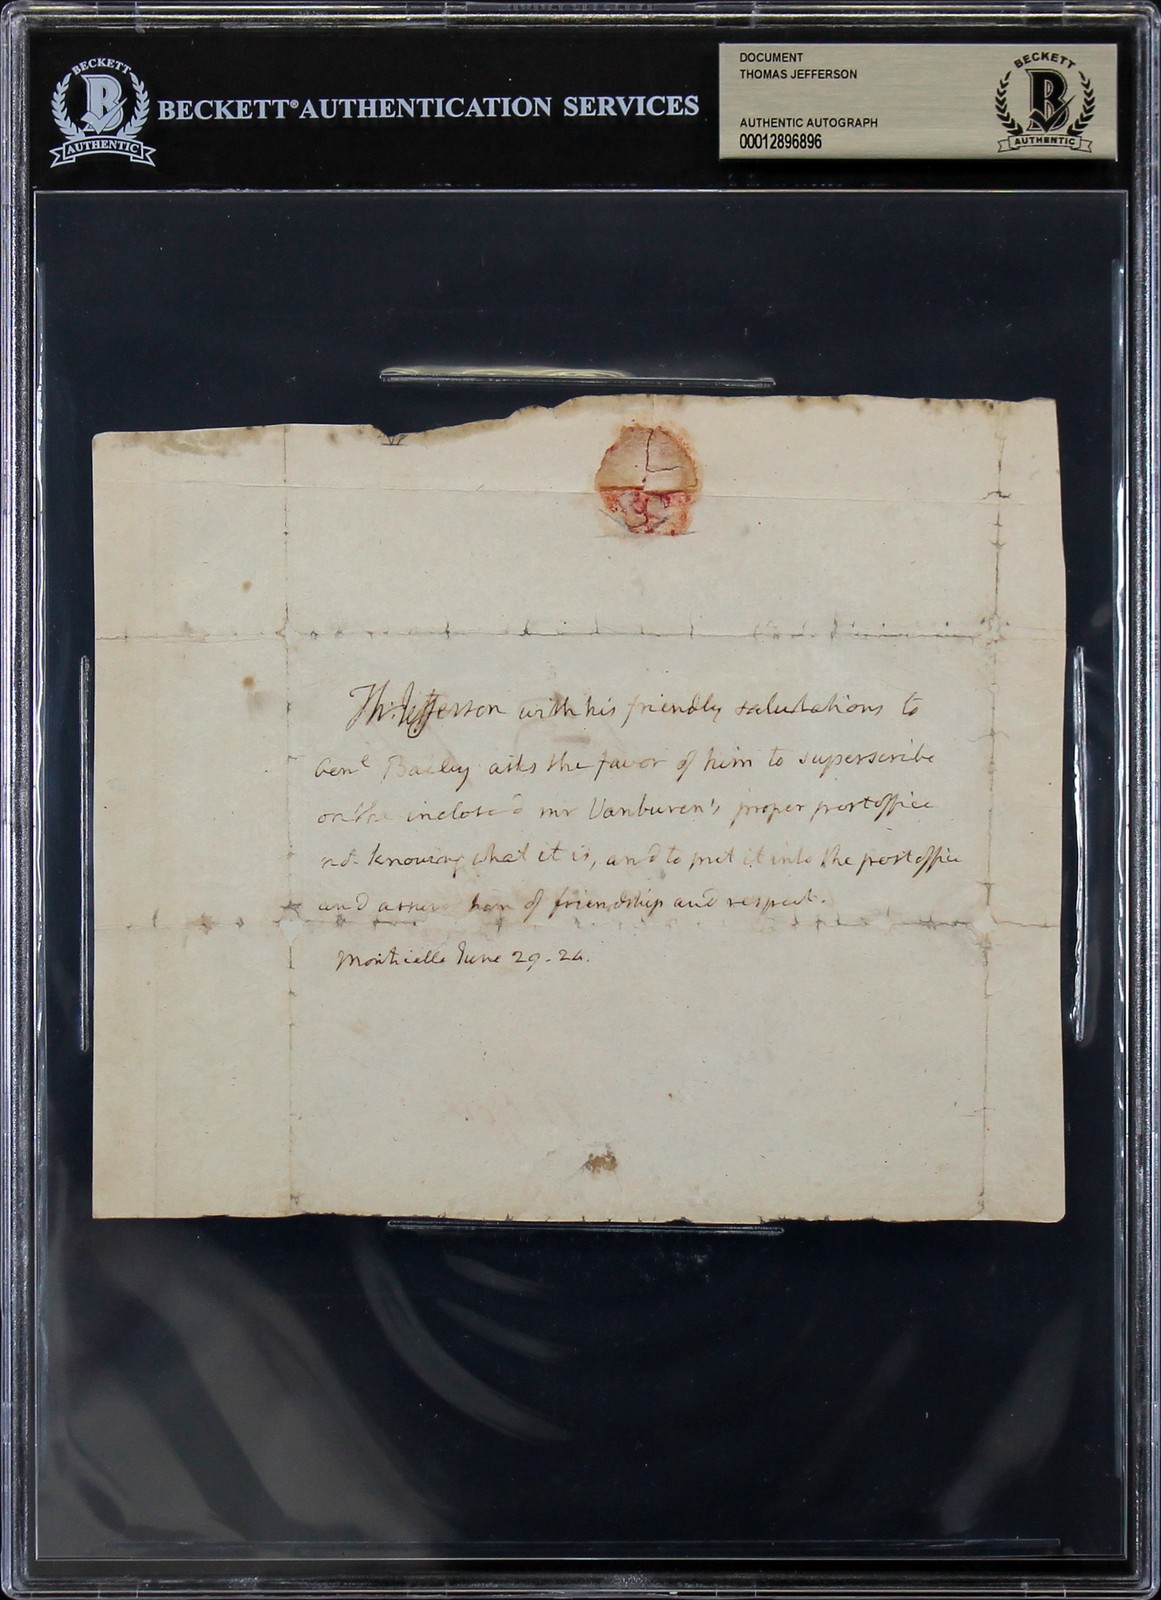 BECKETT
AUTHENTIC
BECKETT® AUTHENTICATION SERVICES
DOCUMENT
THOMAS JEFFERSON
AUTHENTIC AUTOGRAPH
00012896896
BECKETT
AUTHENTIC
Th: Jefferson with his friendly salutations to
Genl Bailey asks the favor of him to superscribe
on the inclosed mr Vanburen's proper post office
not knowing what it is, and to put it into the post office
and of friendship and respect.
Monticello June 29. 24.